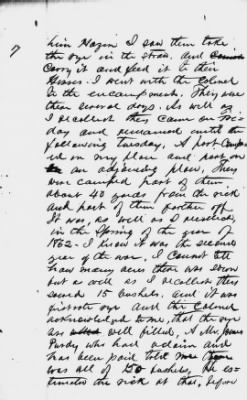 7
him Hazen I saw them take
the rye in the straw, and
Carry it and feed it to their
Horses. I went with the Colonel
to the encampments. They were
there several days. As well as
I recollect they came on Fri-
day and remained until the
following Tuesday. A part Camp-
ed on my place and part on
an adjoining place. They
were camped part of them
about 40 yards from the rick
and part of them farther off.
It was, as well as I recollect,
in the Spring of the year of
1862 - I know it was the second
year of the war. I cannot tell
how many acres there was sown
but as well as I recollect they
sowed 15 bushels. and it was
first rate rye and the Colonel
acknowledged to me, that the rye
was well filled. A Mr.
Purdy who had a claim and
has been paid told me there
was all of 150 bushels, He es-
timated the rick at that, before